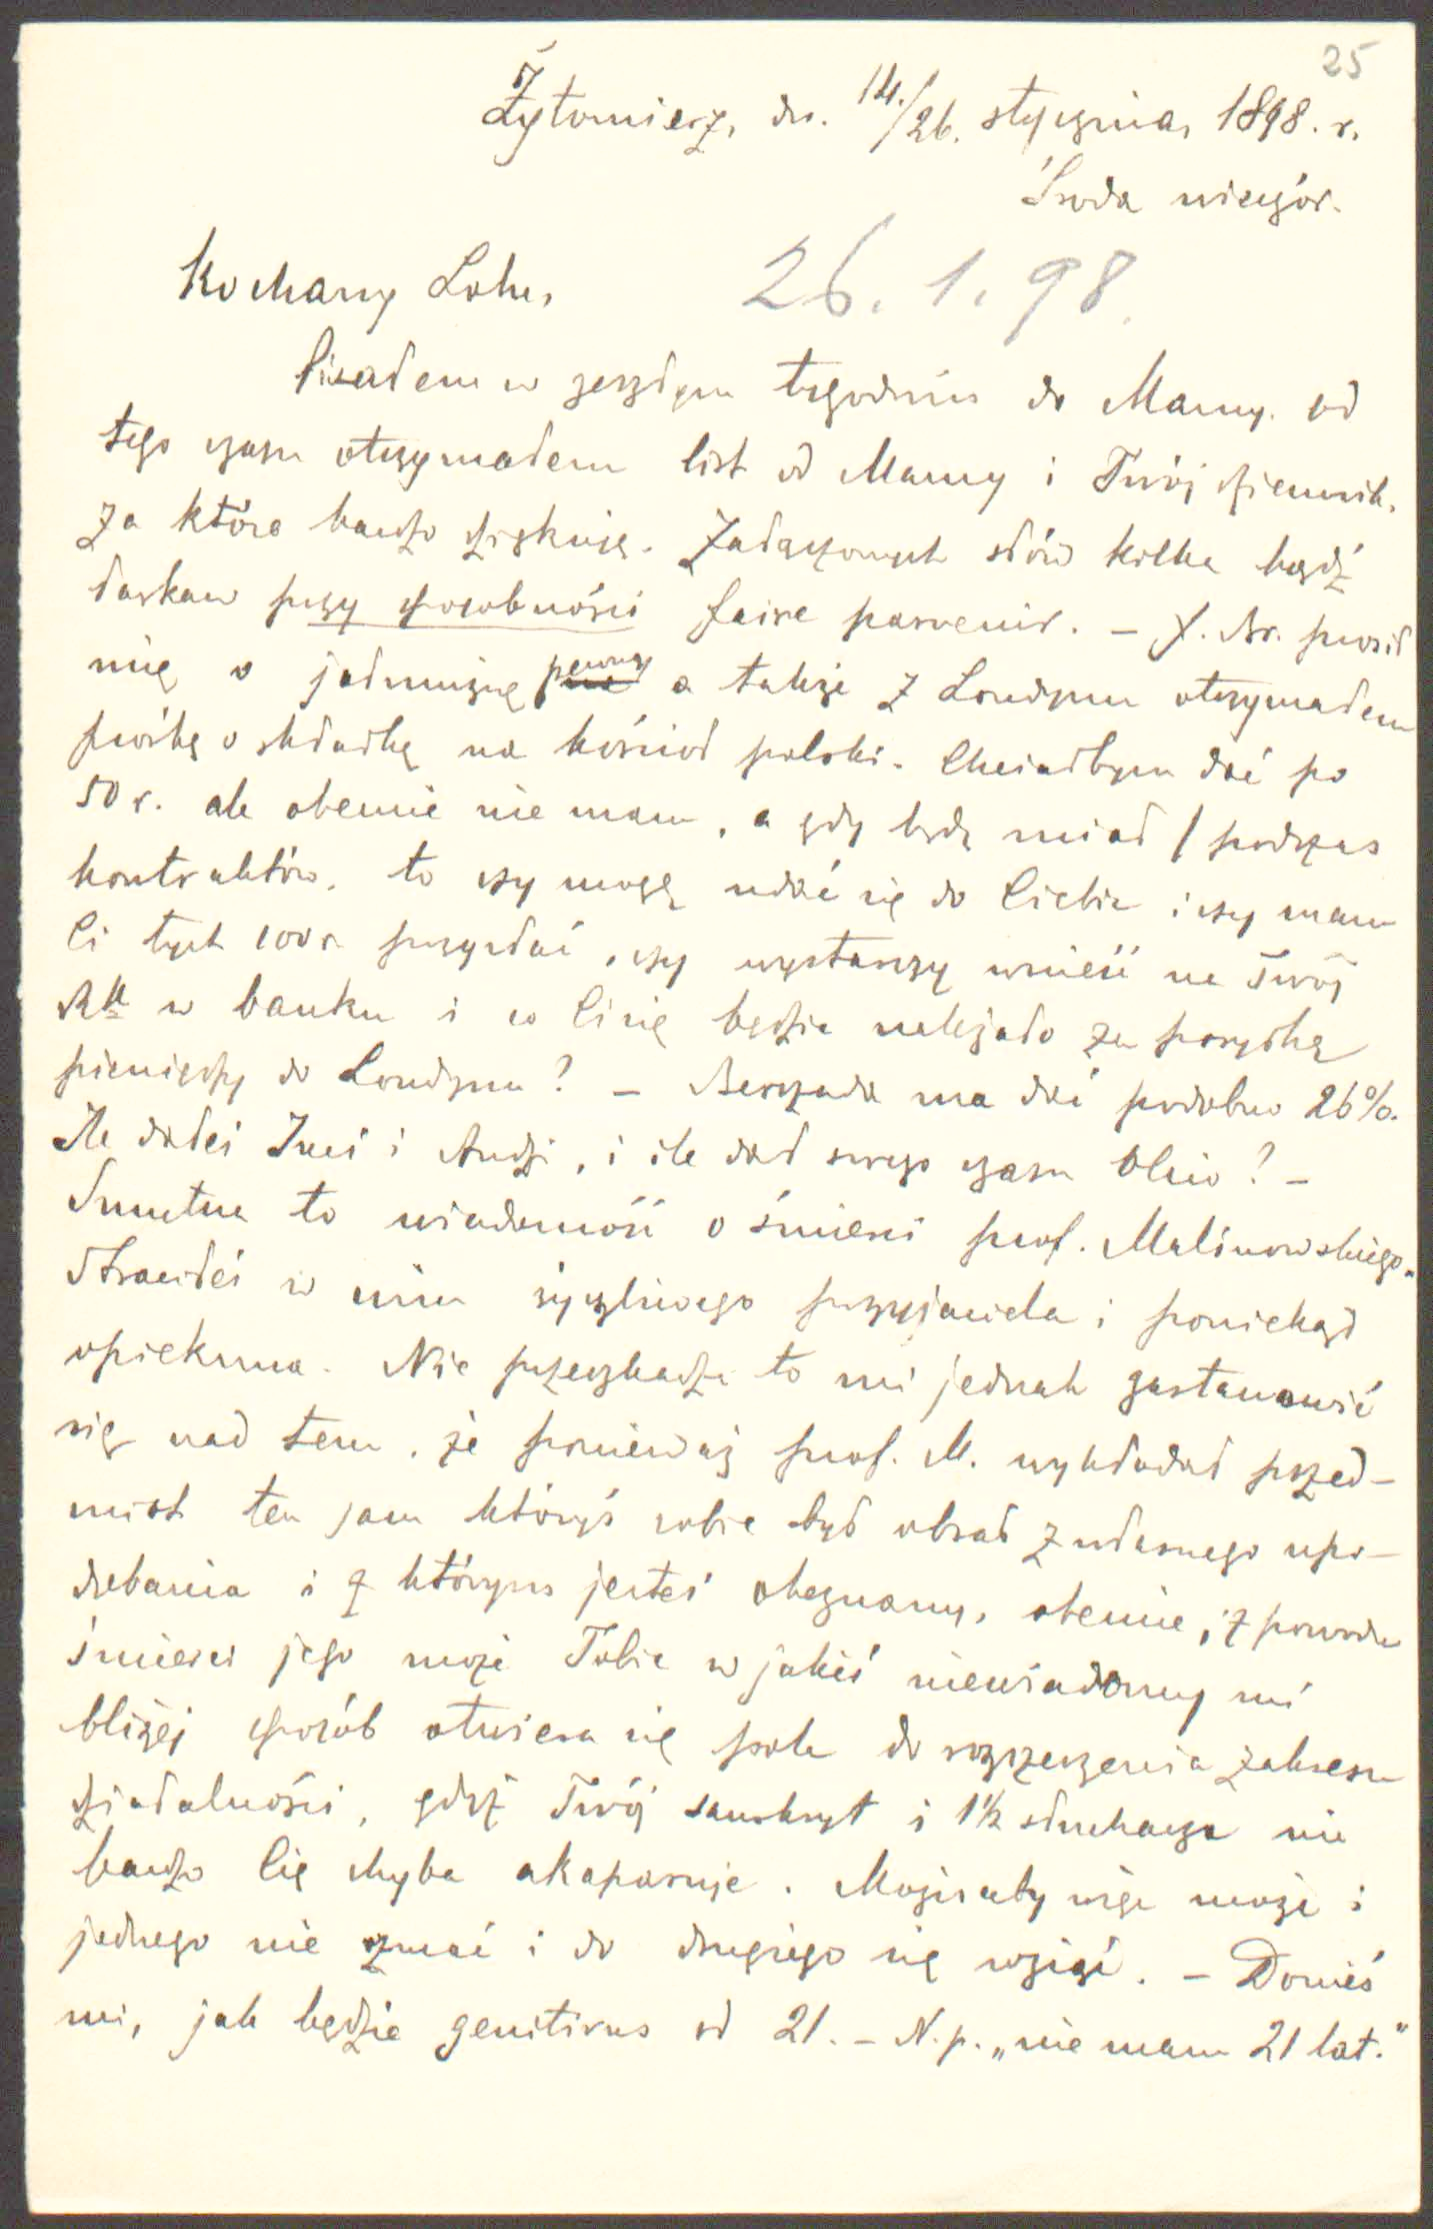 25
Żytomierz, dn. 14./26. stycznia, 1898. r.
Środa wieczór.
Kochany Lolu,
26. 1. 98.
Pisałem w zeszłym tygodniu do Mamy. od
tego czasu otrzymałem list od Mamy i Twój dziennik,
za które bardzo dziękuję. Załączonych słów kilka bądź
łaskaw przy sposobności faire parvenir. – X. Ar. prosił
mię o jałmużnę pewną a także z Londynu otrzymałem
prośbę o składkę na kościoł polski. Chciałbym dać po
50 r. ale obecnie nie mam, a gdy będę miał / podczas
kontraktów, to czy mogę udać się do Ciebie i czy mam
Ci tych 100 r. przysłać, czy wystarczy wnieść na Twój
w banku i co Ci się będzie należało za posyłkę
pieniędzy do Londynu? – Berszada ma dać podobno 26%.
Ile dałeś Inci i Andzi, i ile dał swego czasu Olcio? –
Smutna to wiadomość o śmierci prof. Malinowskiego.
Straciłeś w nim życzliwego przyjaciela i poniekąd
opiekuna. Nie przeszkadza to mi jednak zastanowić
się nad tem, że ponieważ prof. M. wykładał przed-
miot ten sam któryś sobie był obrał z własnego upo-
dobania i z którym jesteś obeznany, obecnie, z powodu
śmierci jego może Tobie w jakiś niewiadomy mi
bliżej sposób otwiera się pole do rozszerzenia zakresu
działalności, gdyż Twój sanskryt i 1½ słuchacza nie
bardzo Cię chyba akaparuje. Mógłby więc może i
jednego nie znać i do drugiego się wziąć. – Donieś
mi, jak będzie genitivus od 21. – N.p. „nie mam 21 lat.”